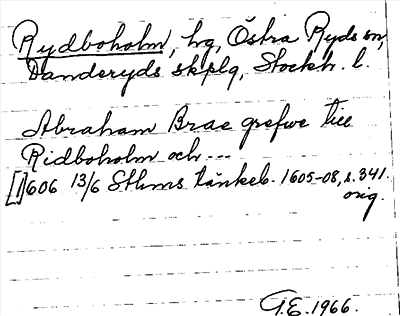 Rydboholm, hg, Östra Ryds sn,
Danderyds skplg, Stockh. l.
Abraham Brae grefwe till
Ridboholm och ...
[1]606 13/6 Sthms tänkeb. 1605-08, s. 341.
orig.
G.E. 1966.